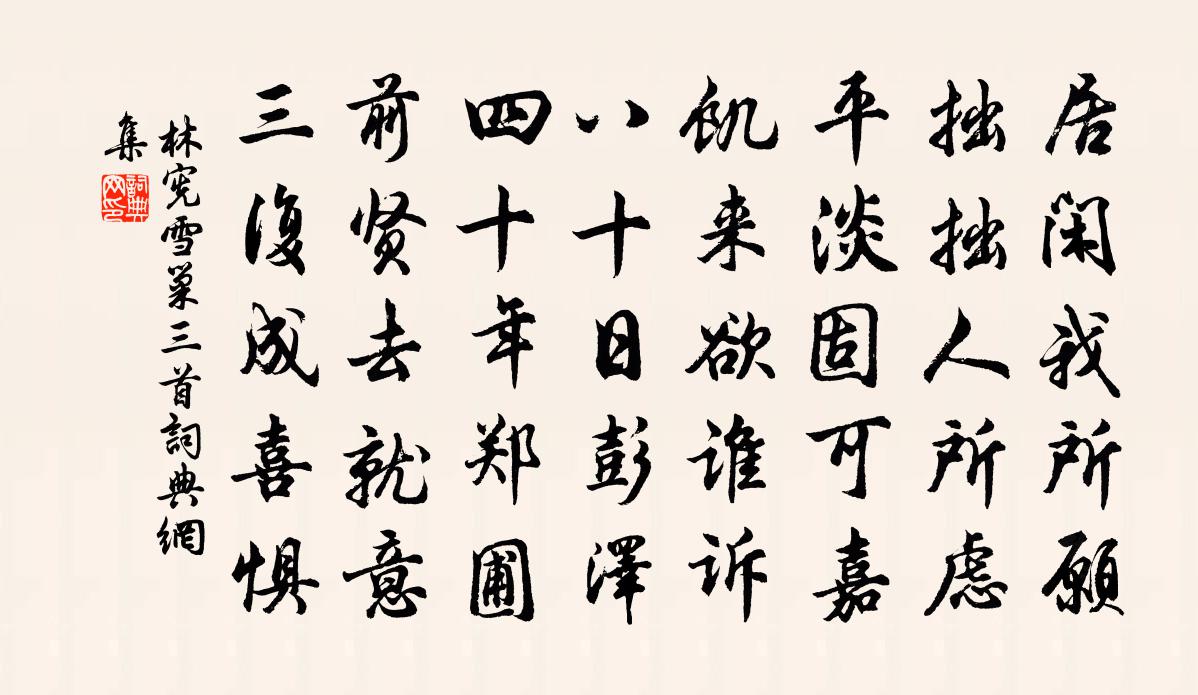 居闲我所願
拙拙人所虑
平淡固可嘉
飢来欲谁诉
八十日彭澤
四十年郑圃
前贤去就意
三復成喜惧
林宪雪巢三首詞典網
集
詞典
网印